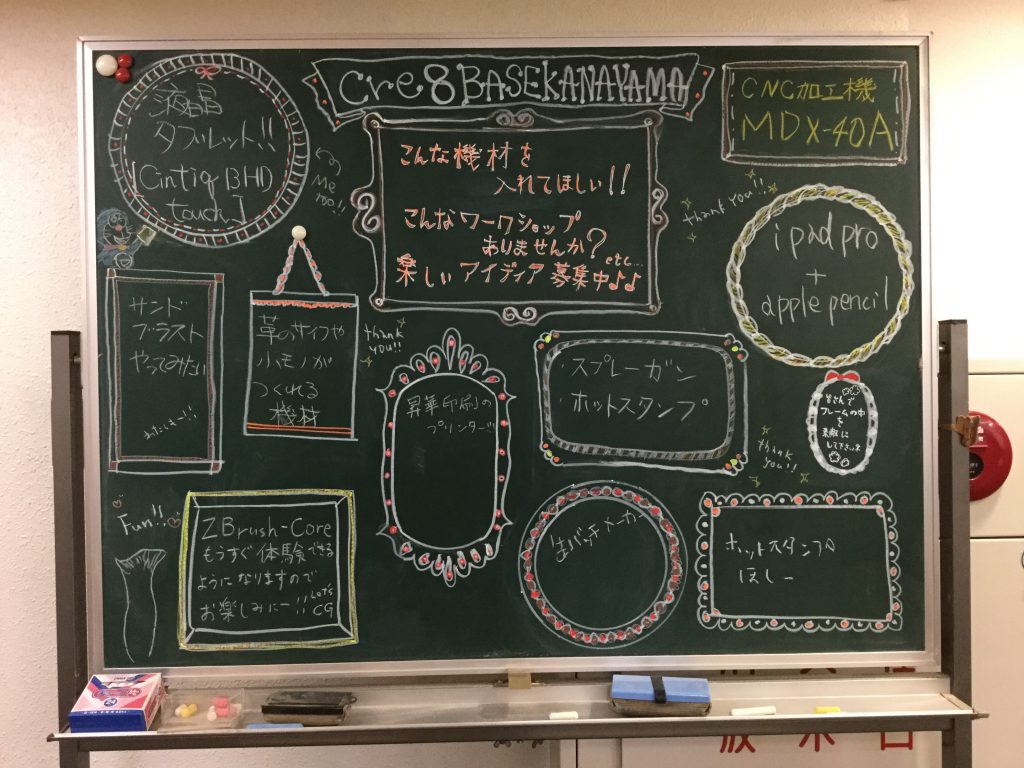 Cre8BASEKANAYAMA
CNC加工機
MDX-40A
液晶
タブレット!!
[Cintiq 13HD
touch]
Me
mo!!
こんな機材を
入れてほしい!!
こんなワークショップ
ありませんか?
etc...
楽しいアイディア募集中♪♪
thank you!!
ipad pro
+
apple pencil
サンド
ブラスト
やってみたい
革のサイフや
小モノが
つくれる
機材
thank
you!!
昇華印刷の
プリンター!!
・スプレーガン
・ホットスタンプ
皆さんで
フレームの中
を
素敵に
して下さいま
thank
you!!
Fun!!
ZBrush-Core
もうすぐ体験できる
ようになりますので
お楽しみにー!!
Let's
CG
缶バッチメーカー
ホットスタンプ
ほしー